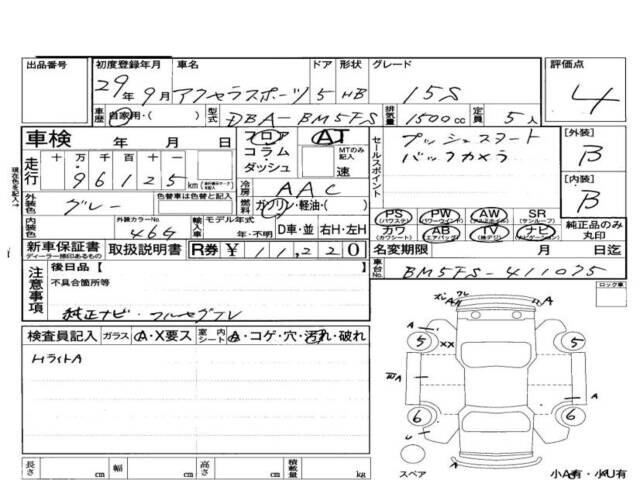 出品番号 初度登録年月 車名 ドア 形状 グレード 評価点
29年 9月 アクセラスポーツ 5 HB 15S 4
車歴 自家用・( ) 型式 DBA-BM5FS 排気量 1500cc 定員 5人
車検 年 月 日 フロア AT プッシュスタート [外装]
コラム・ MTのみ記入 セールスポイント バックカメラ B
ダッシュ 速
走行 十 万 千 百 十 一 [内装]
96125 km 冷房 AAC B
外装色 グレー 色替車は色替と記入 燃料 ガソリン・軽油・( ) PS PW AW SR 純正品のみ丸印
(パワステ) (パワーウインド) (アルミホイル) (サンルーフ)
内装色 外装カラーNo. 46G 輸入車 モデル年式 年・不明 D車・並 右H・左H カワ AB TV ナビ
(カワシート) (エアバッグ) (地デジ) (ナビゲーション)
新車保証書 取扱説明書 R券 ¥ 11,220 名変期限 月 日迄
ディーラー捺印あるもの
現在色を記入→
注意事項 後日品【 】 車台No. BM5FS-411075
不具合箇所等 ロック車
純正ナビ・フルセグTV
検査員記入 ガラス A・X要ス 室内シート A・コゲ・穴・汚れ・破れ
HライトA
A
A 5 XX 5
A A
6 6
A
U
スペア 小A有・小U有
長さ cm 幅 cm 高さ cm 積載量 kg